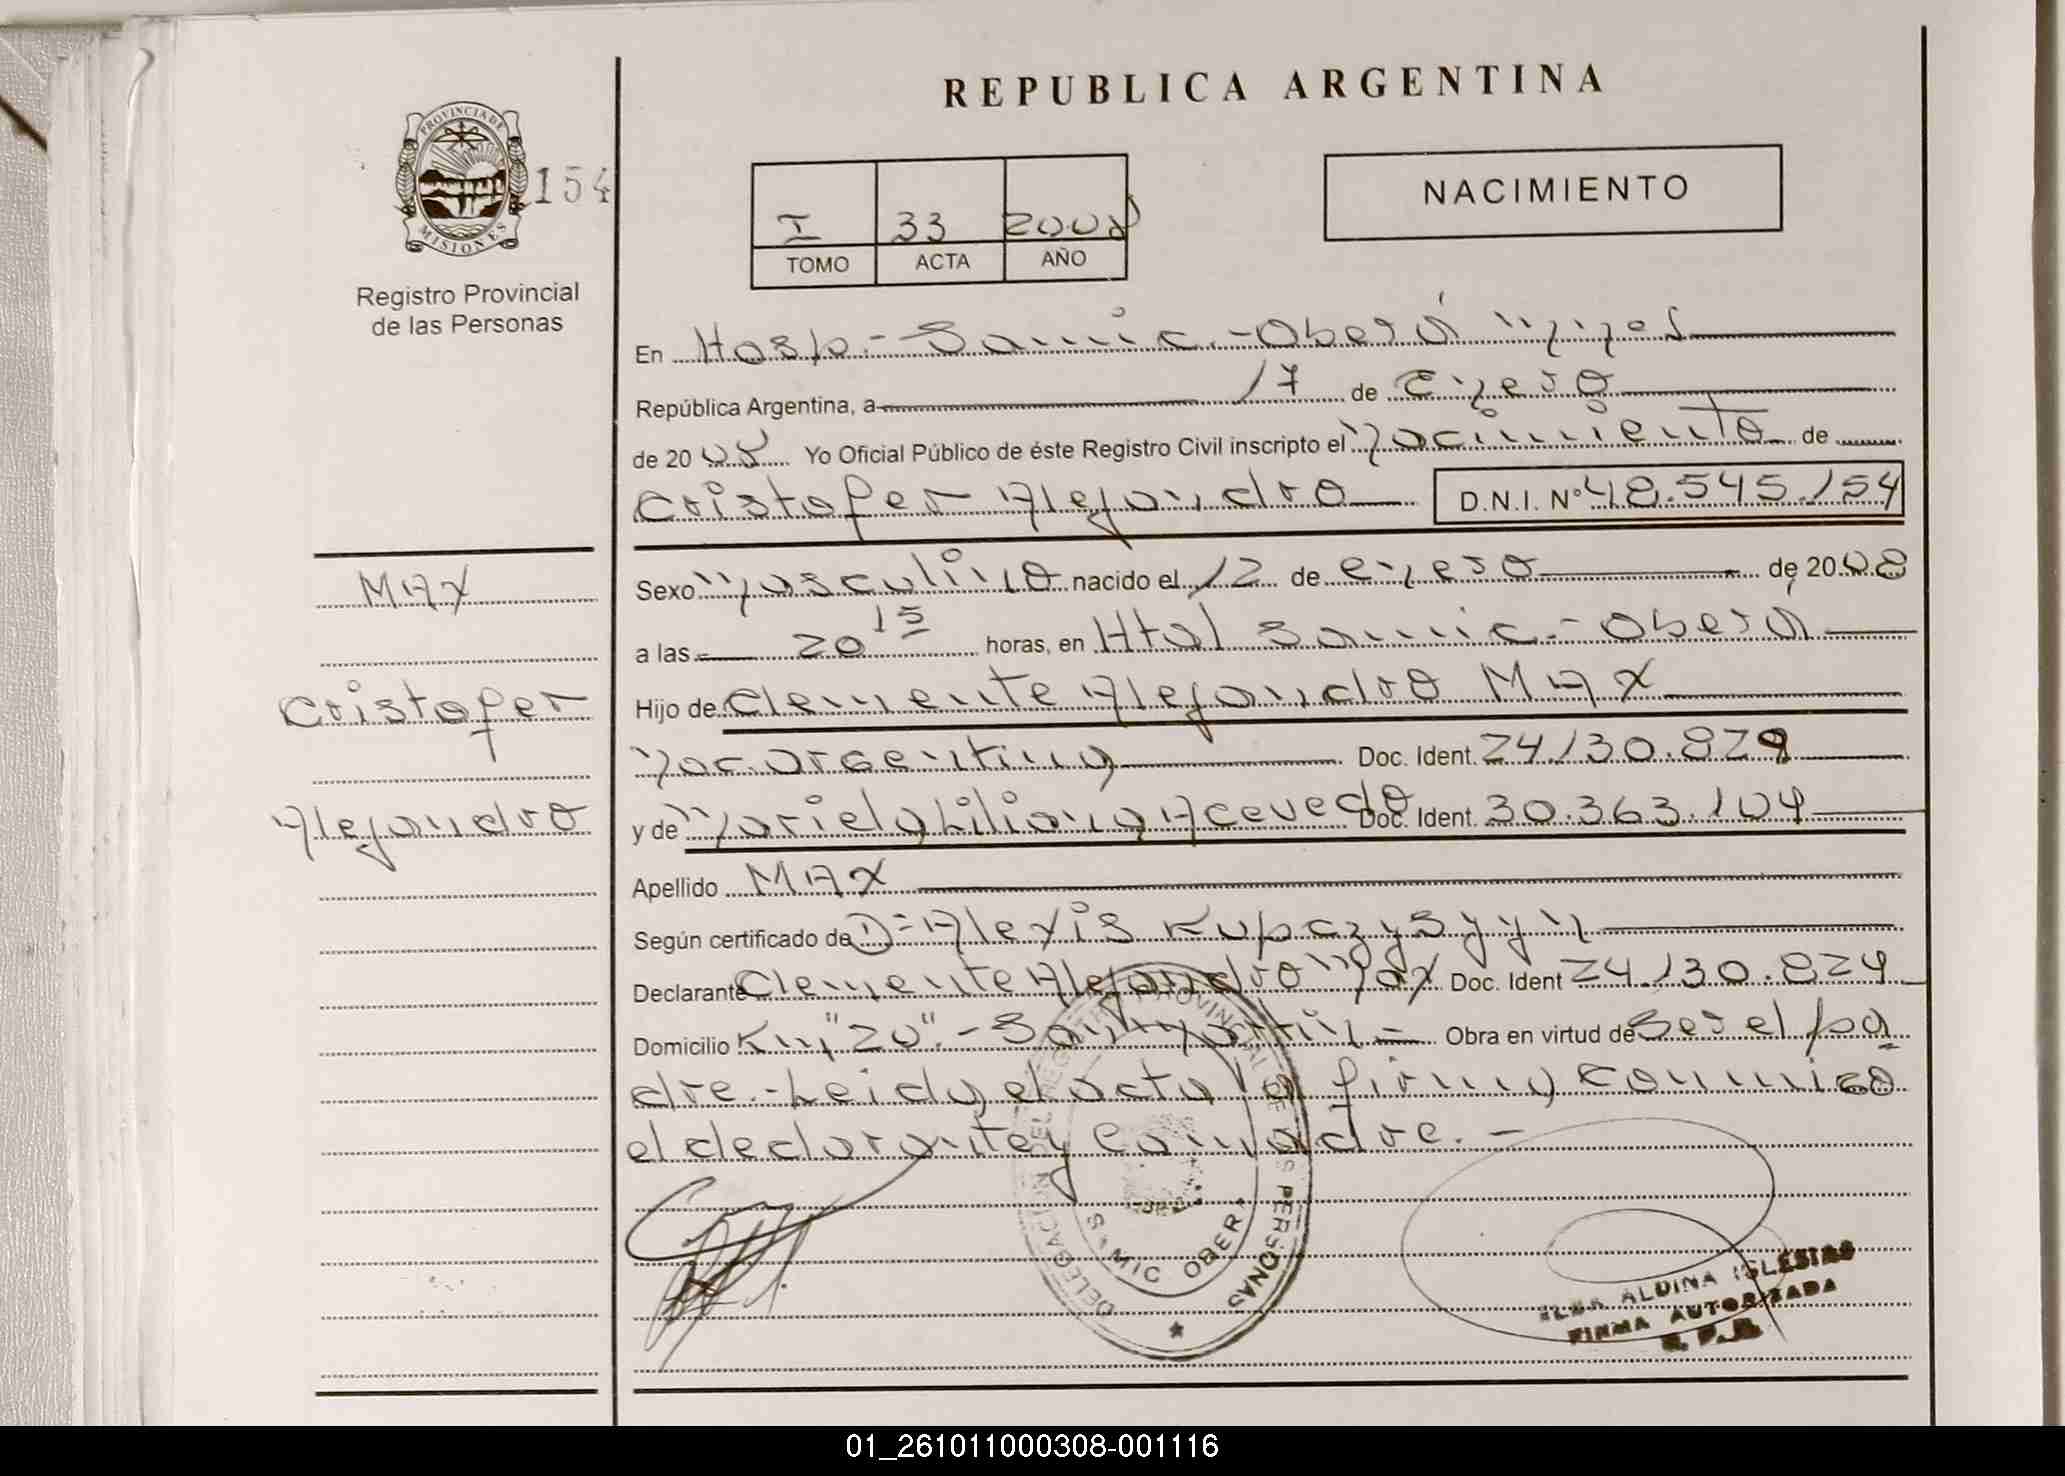 REPUBLICA ARGENTINA
PROVINCIA DE
MISIONES
154
Registro Provincial
de las Personas
NACIMIENTO
I 33 2008
TOMO ACTA AÑO
En Hosp.- Samic.- Oberá Mnes
República Argentina, a 17 de Enero
de 20 08 Yo Oficial Público de éste Registro Civil inscripto el Nacimiento de
Cristofer Alejandro D.N.I. Nº 48.545.154
Sexo Masculino nacido el 12 de enero de 2008
a las 20 15 horas, en Htal Samic.- Oberá
Hijo de Clemente Alejandro MAX
Nac. argentina Doc. Ident. 24.130.829
y de Mariela Liliana Acevedo Doc. Ident. 30.363.104
Apellido MAX
Según certificado de D= Alexis
Declarante Clemente Alejandro Max Doc. Ident 24.130.829
Domicilio Km "20".- San Martin = Obra en virtud de Ser el pa
dre.- Leida el acta la firma conmigo
el declarante y la madre.-
MAX
Cristofer
Alejandro
DELEGACION DEL REGISTRO PROVINCIAL DE LAS PERSONAS
SAMIC OBERA
ALDINA IGLESIAS
FIRMA AUTORIZADA
R. P. P.
01_261011000308-001116